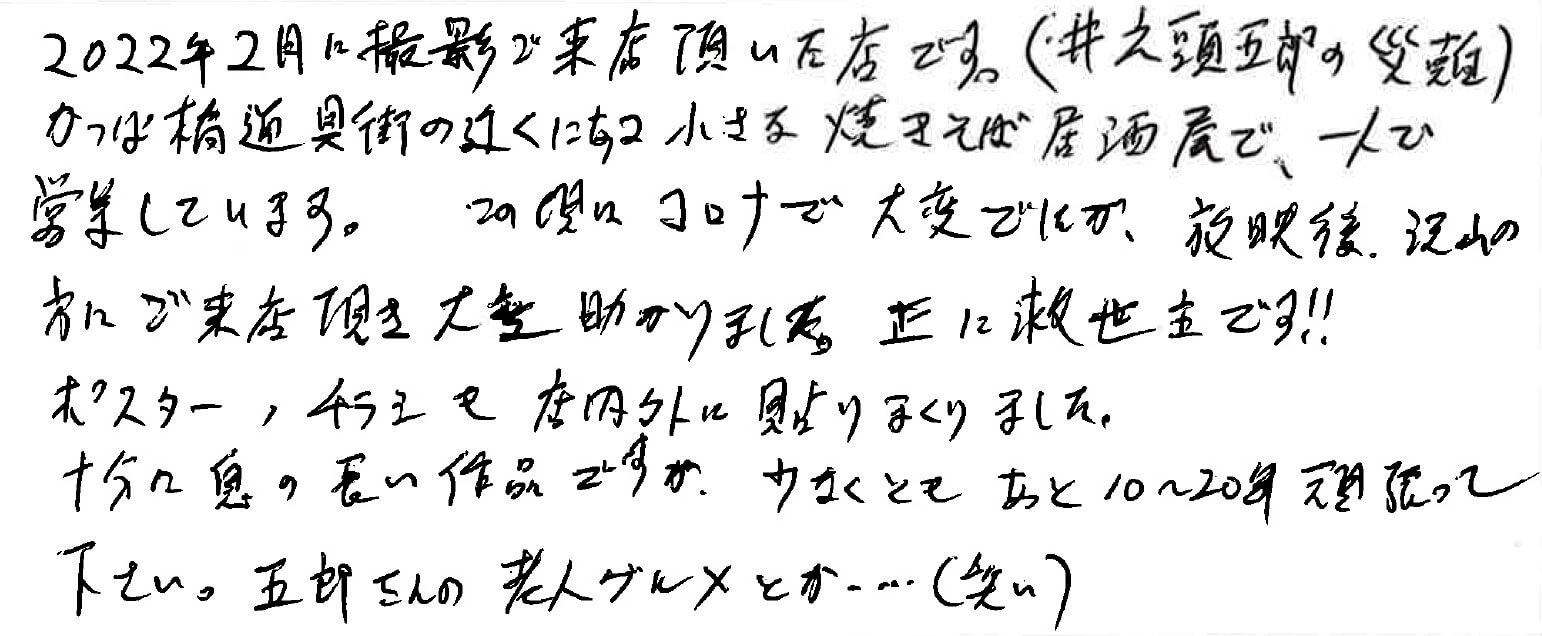 2022年2月に撮影で来店頂いた店です。(井之頭五郎の災難)
かっぱ橋道具街の近くにある小さな焼きそば居酒屋で、一人で
営業しています。 この頃はコロナで大変でしたが、放映後、沢山の
方にご来店頂き大変助かりました。正に救世主です!!
ポスター、チラシも店内外に貼りまくりました。
十分に息の長い作品ですが、少なくともあと10~20年頑張って
下さい。五郎さんの老人グルメとか……(笑い)